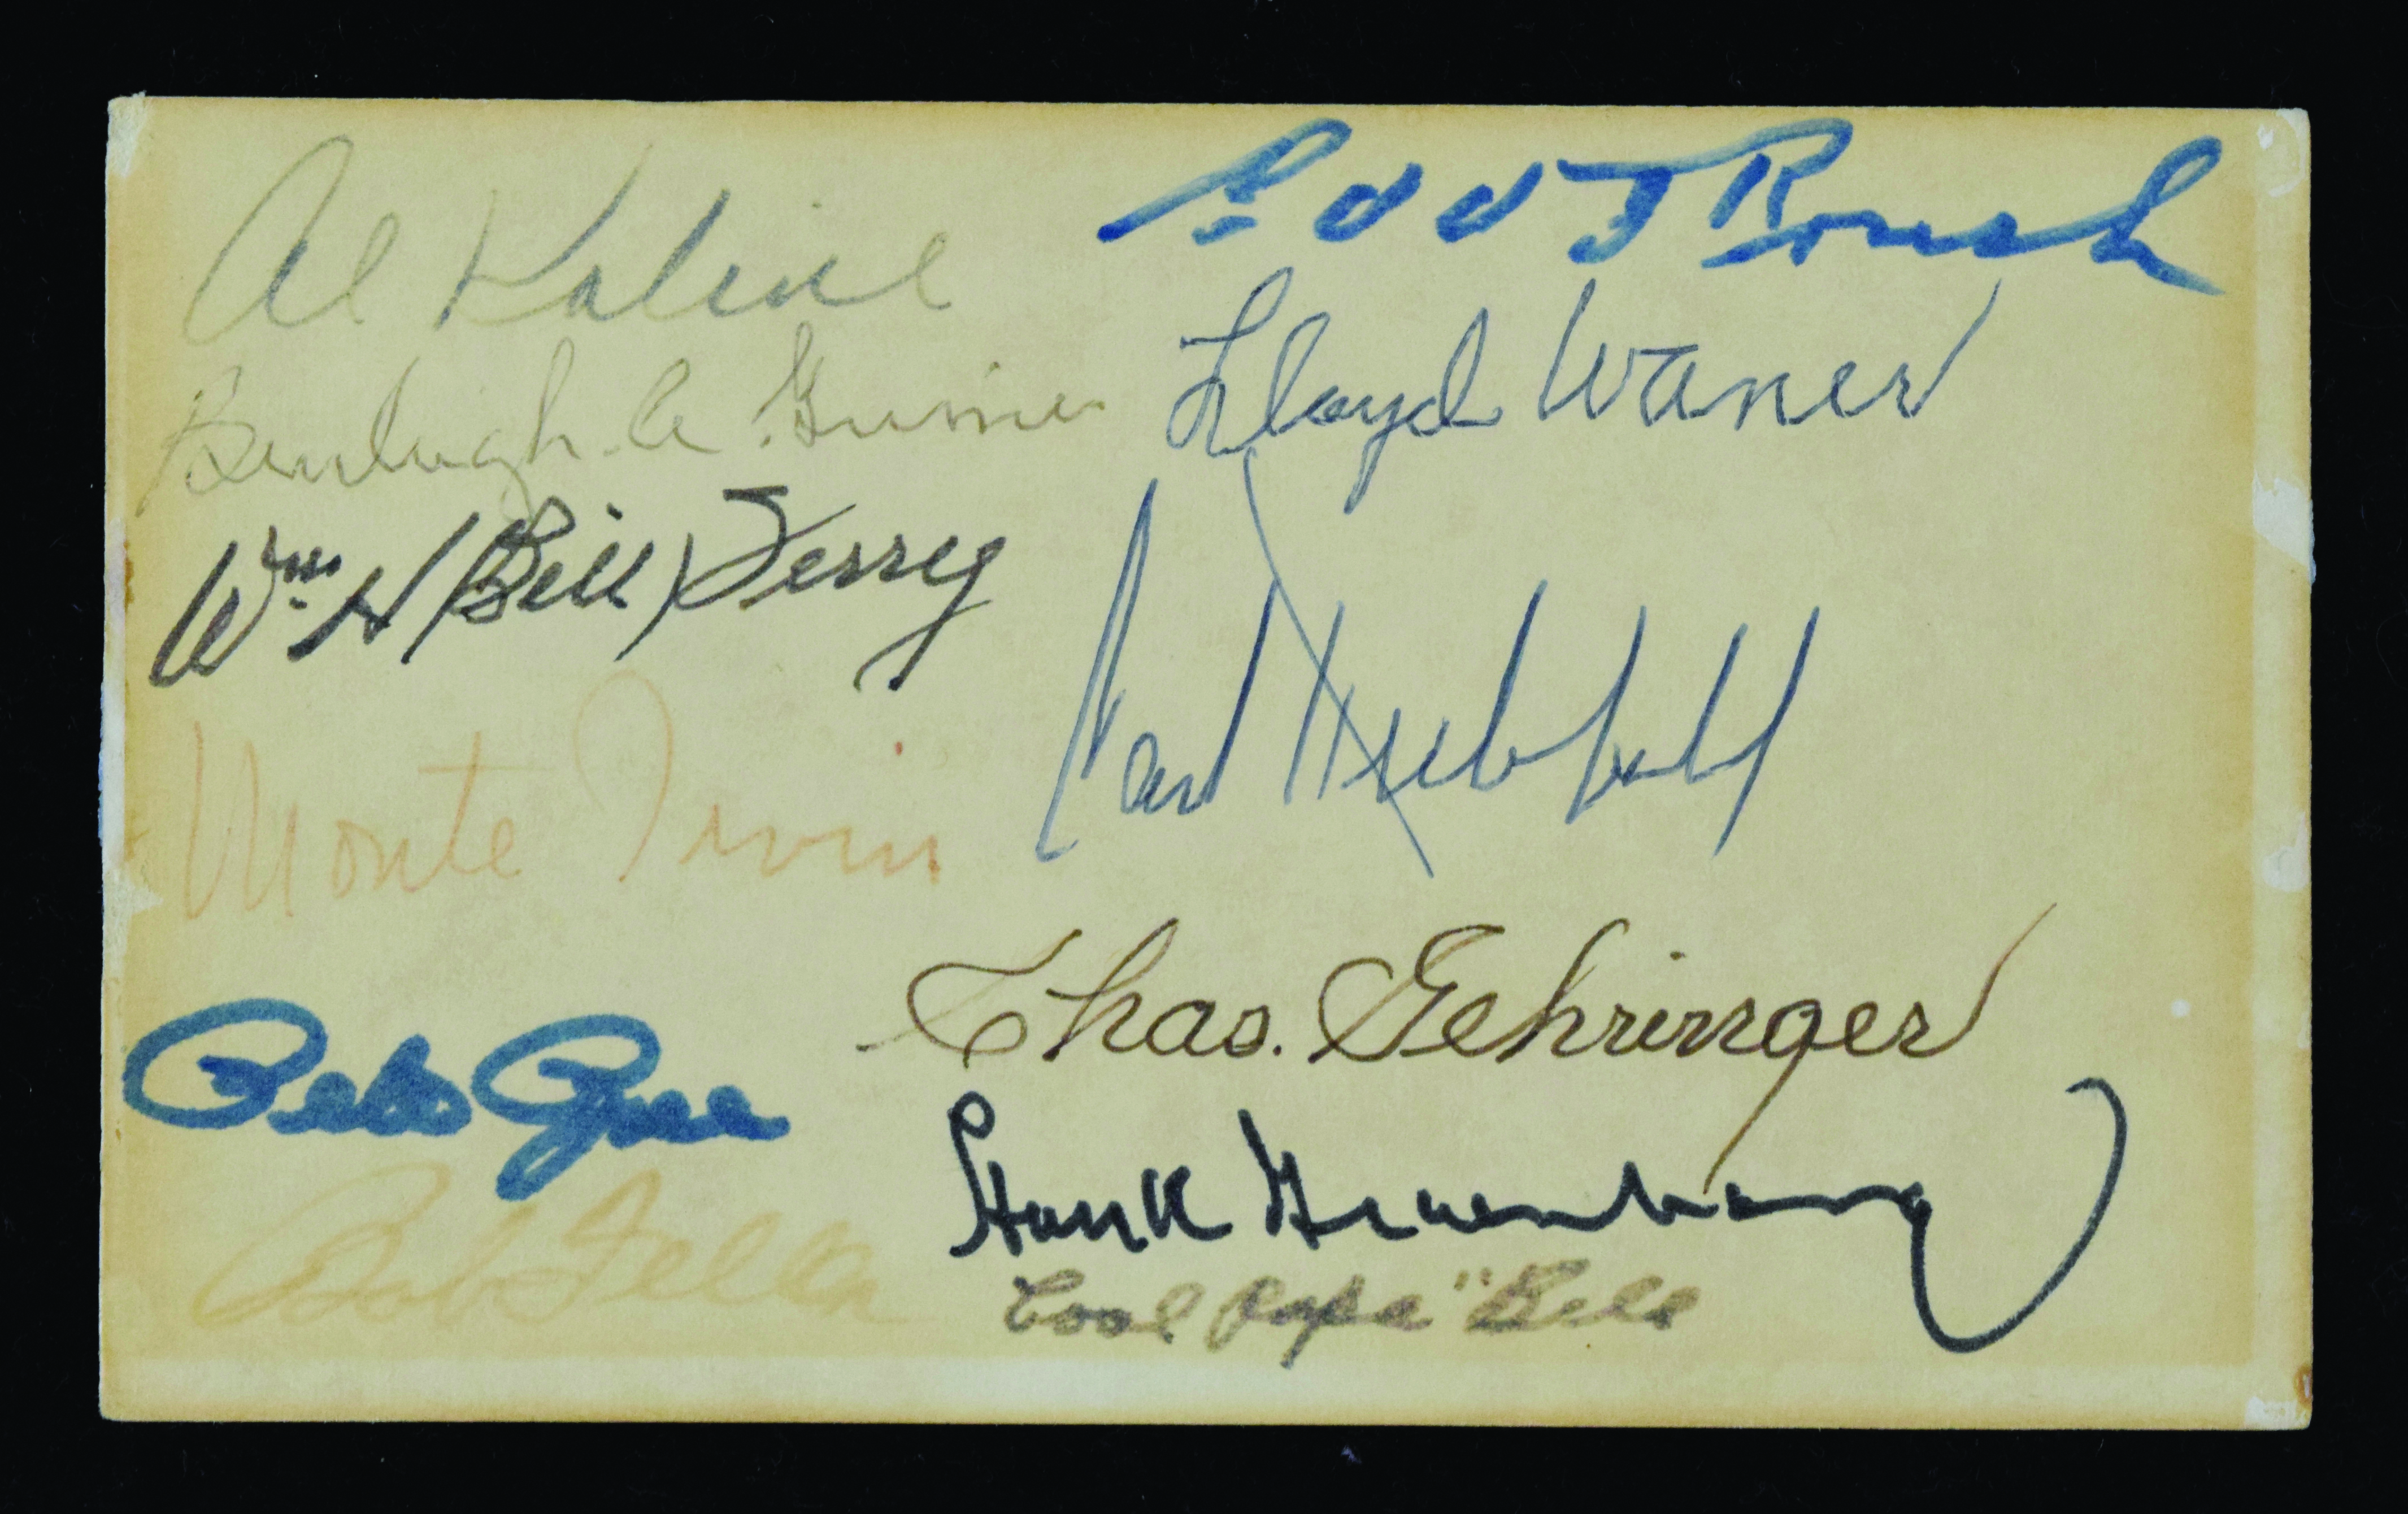 Al Kaline
Edd J Roush
Burleigh A Grimes
Lloyd Waner
Wm H (Bill) Terry
Carl Hubbell
Monte Irvin
Chas. Gehringer
Pete Rose
Hank Greenberg
Bob Feller
Cool Papa" Bell